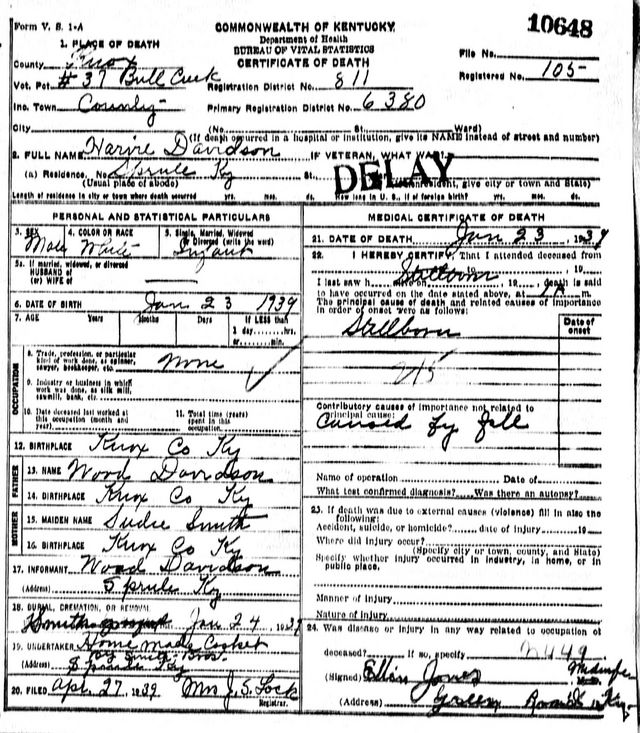 Form V. S. 1-A
COMMONWEALTH OF KENTUCKY
10648
Department of Health
BUREAU OF VITAL STATISTICS
CERTIFICATE OF DEATH
1. PLACE OF DEATH
County Knox
File No.
Vot. Pct # 37 Bull Creek
Registration District No. 811
Registered No. 105-
Inc. Town County
Primary Registration District No. 6380
City (No. St. Ward)
(If death occurred in a hospital or institution, give its NAME instead of street and number)
2. FULL NAME Davidson IF VETERAN, WHAT WAR?
(a) Residence. No. Sprule Ky St.
DELAY
(Usual place of abode) give city or town and State)
Length of residence in city or town where death occurred yrs. mos. ds. How long in U. S., if of foreign birth? yrs. mos. ds.
PERSONAL AND STATISTICAL PARTICULARS
3. SEX 4. COLOR OR RACE 5. Single, Married, Widowed or Divorced (write the word)
Male White Infant
5a. If married, widowed, or divorced
HUSBAND of
(or) WIFE of
6. DATE OF BIRTH Jan 23 1939
7. AGE Years Months Days If LESS than
1 day,.....hrs.
or.....min.
OCCUPATION
8. Trade, profession, or particular kind of work done, as spinner, sawyer, bookkeeper, etc. None
9. Industry or business in which work was done, as silk mill, sawmill, bank, etc.
10. Date deceased last worked at this occupation (month and year)
11. Total time (years) spent in this occupation
12. BIRTHPLACE Knox Co Ky
FATHER
13. NAME Wood Davidson
14. BIRTHPLACE Knox Co Ky
MOTHER
15. MAIDEN NAME Sudie Smith
16. BIRTHPLACE Knox Co Ky
17. INFORMANT Wood Davidson
(Address) Sprule Ky
18. BURIAL, CREMATION, OR REMOVAL
Smith Jan 24, 1939
19. UNDERTAKER Home made Casket
Smith Bros.
(Address) Ky
20. FILED Apr. 27, 1939 Mrs J. S. Lock
Registrar.
MEDICAL CERTIFICATE OF DEATH
21. DATE OF DEATH Jan 23, 1939
22. I HEREBY CERTIFY, That I attended deceased from
Stillborn , 19
I last saw h alive on , 19 , death is said
to have occurred on the date stated above, at m.
The principal cause of death and related causes of importance
in order of onset were as follows:
Date of onset
Stillborn
Contributory cause of importance not related to
principal cause:
Caused by fall
Name of operation Date of
What test confirmed diagnosis? Was there an autopsy?
23. If death was due to external causes (violence) fill in also the
following:
Accident, suicide, or homicide? date of injury 19
Where did injury occur?
(Specify city or town, county, and State)
Specify whether injury occurred in industry, in home, or in
public place.
Manner of injury
Nature of injury
24. Was disease or injury in any way related to occupation of
deceased? If so, specify
(Signed) Jones Midwife
(Address) Green Road Ky.